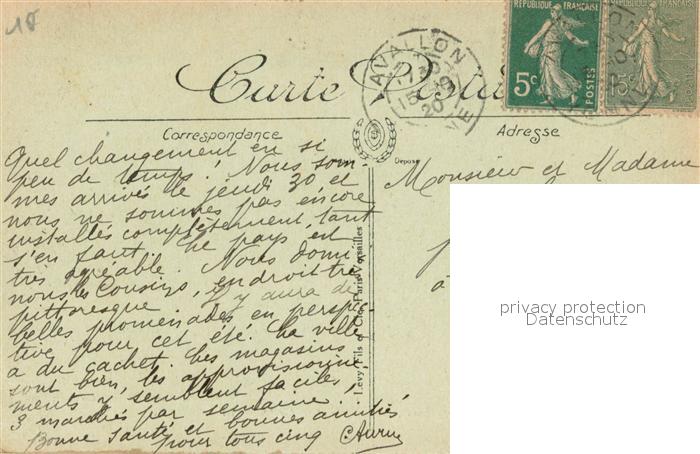 18
RÉPUBLIQUE FRANÇAISE
5c
POSTES
RÉPUBLIQUE FRANÇAISE
15c
AVALLON
20
Carte Postale
Correspondance
Adresse
Déposé
Quel changement en si
peu de temps! Nous som-
mes arrivés le jeudi 30 et
nous ne sommes pas encore
installés complètement, tant
s'en faut. Le pays est
très agréable. Nous domi
nons les Cousins, endroit très
pittoresque. Il y aura de
belles promenades en perspec
tive pour cet été. La ville
a du cachet. Les magasins
sont bien, les approvisionne
ments y semblent faciles,
3 marchés par semaine!
Bonne santé et bonnes amitiés
pour tous cinq
Lévy Fils et Cie, Paris-Versailles
Monsieur et Madame
à
privacy protection
Datenschutz